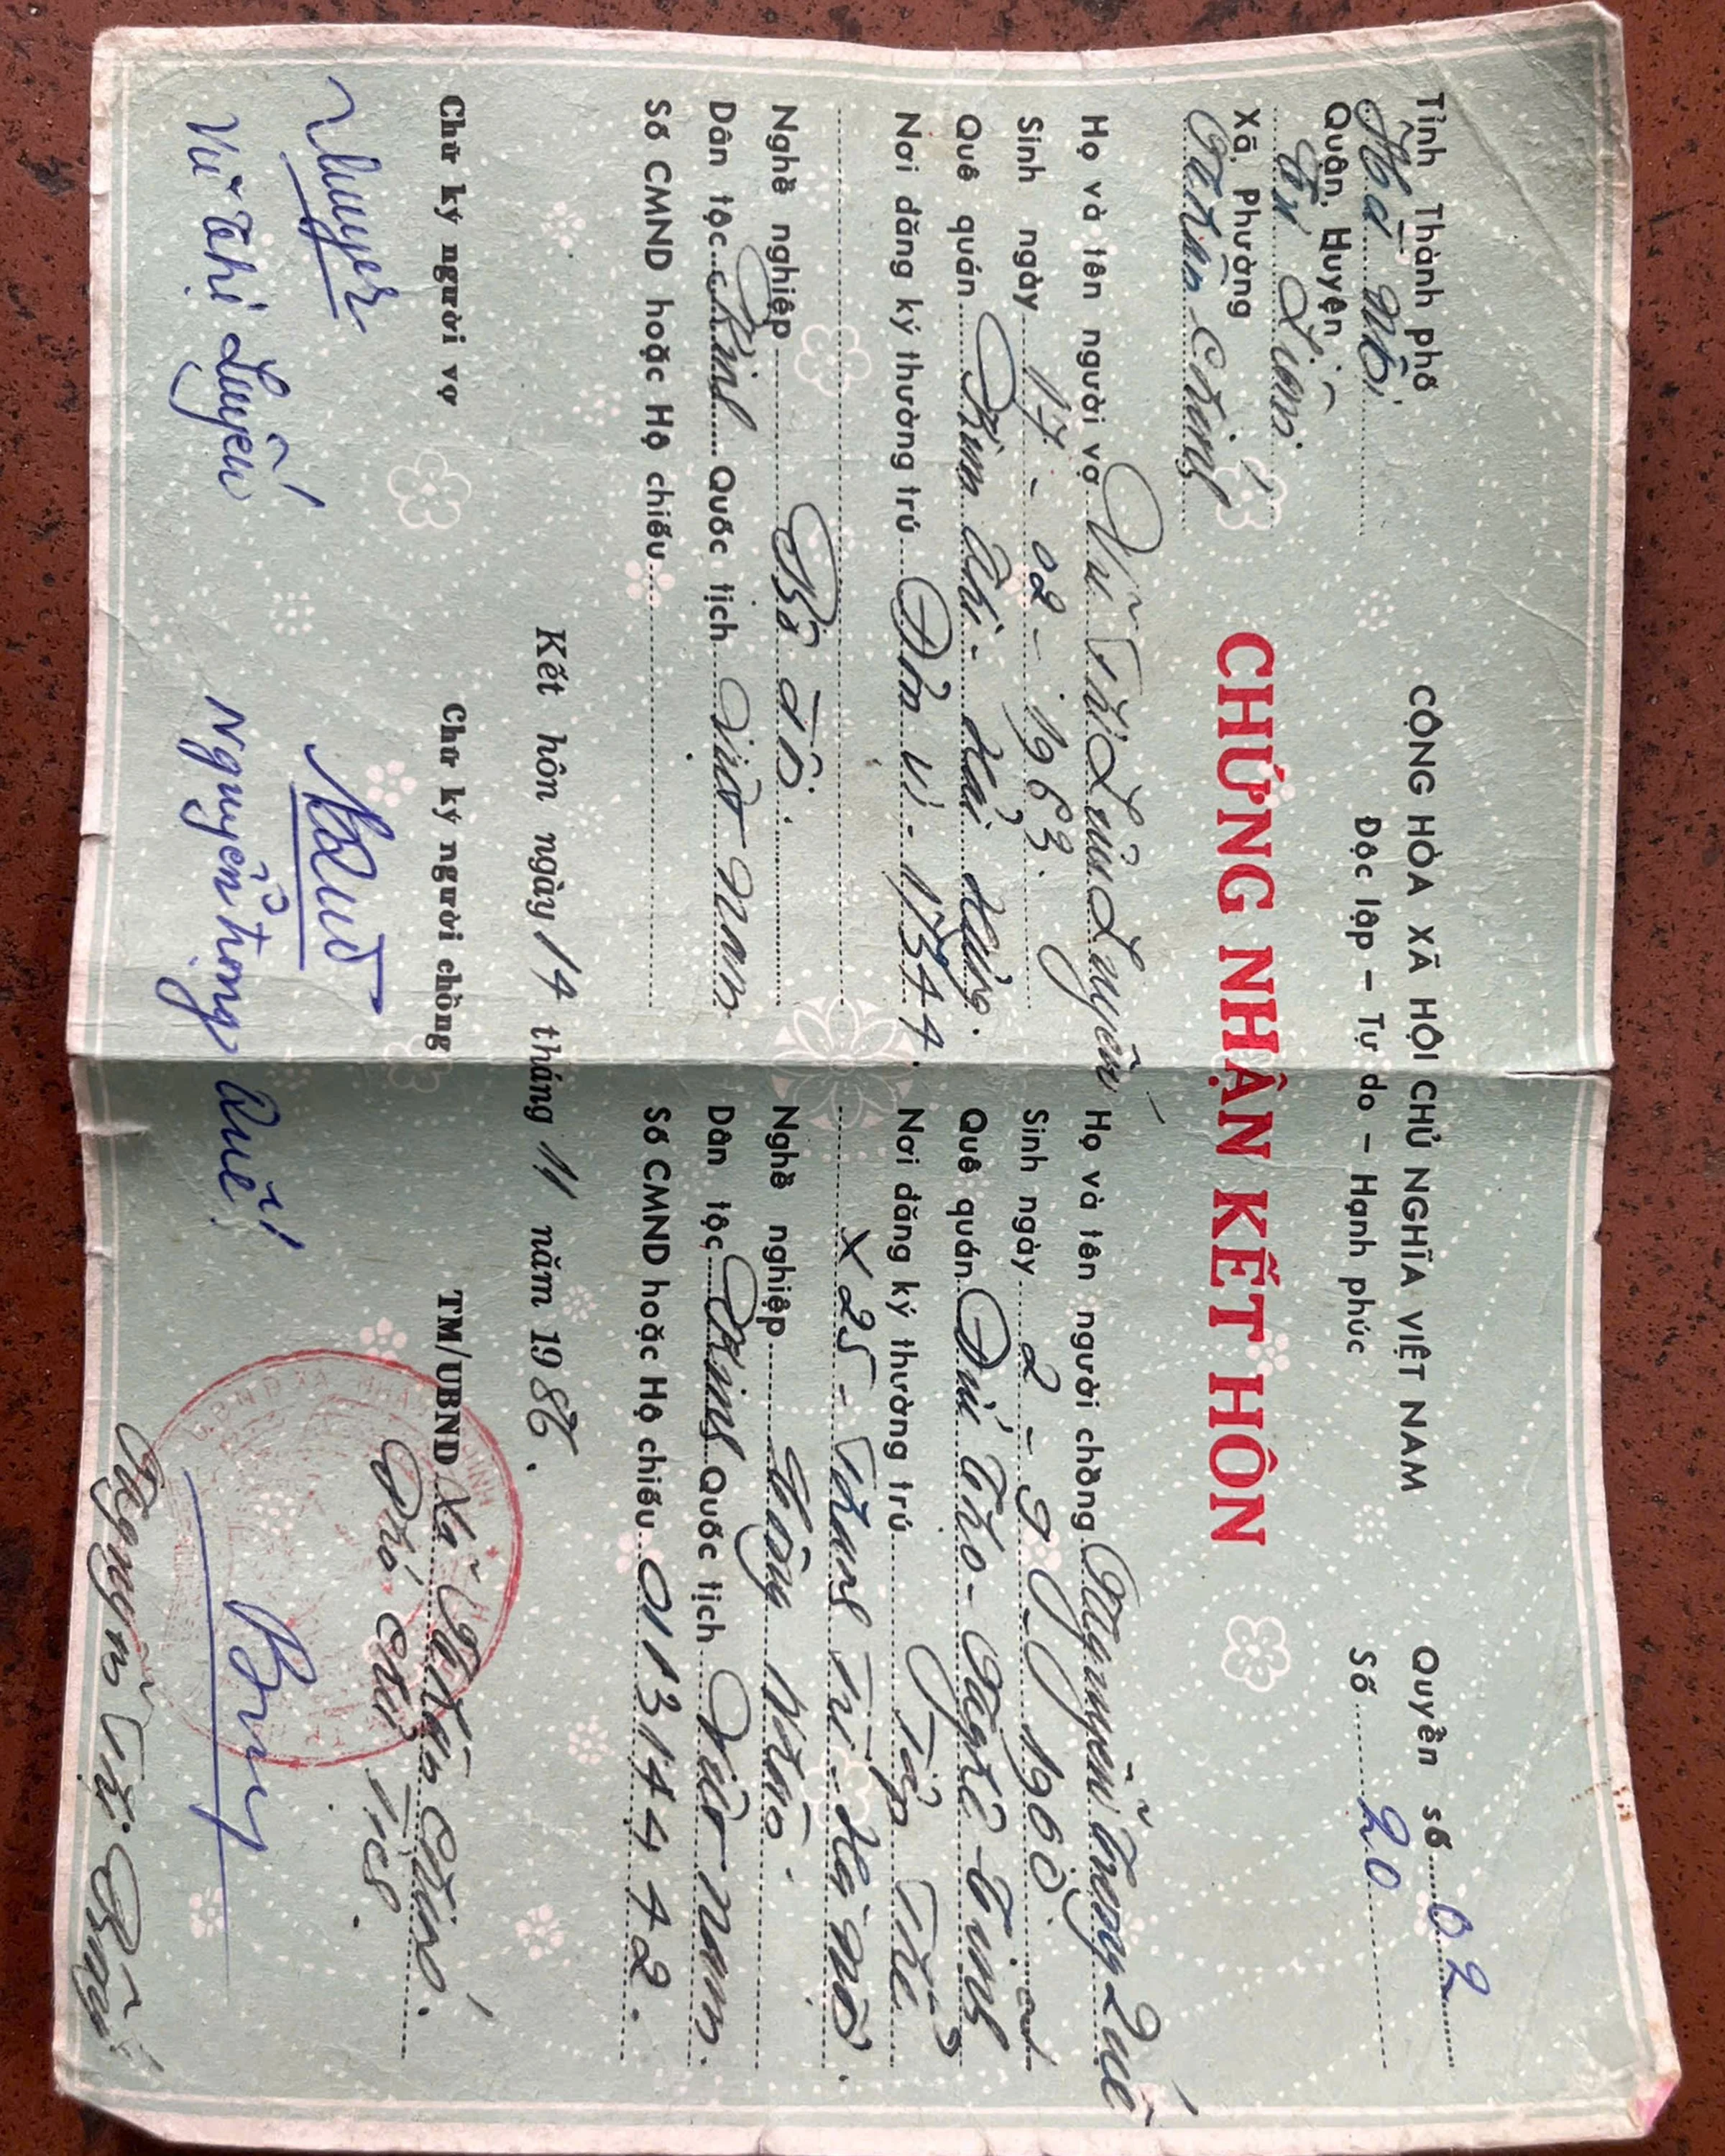 Tỉnh Thành phố
Hà Nội
Quận, Huyện
Từ Liêm
Xã, Phường
Nhân Chính
CỘNG HÒA XÃ HỘI CHỦ NGHĨA VIỆT NAM
Độc lập – Tự do – Hạnh phúc
Quyển số 02
Số 20
CHỨNG NHẬN KẾT HÔN
Họ và tên người vợ Vũ Thị Luyến
Sinh ngày 17 - 02 - 1963.
Quê quán Kim thi - Hải Hưng.
Nơi đăng ký thường trú Đơn vị - 1344.
Nghề nghiệp Bộ đội.
Dân tộc Kinh Quốc tịch Việt Nam
Số CMND hoặc Hộ chiếu
Họ và tên người chồng Nguyễn Trọng Quế
Sinh ngày 2 - 9 - 1960
Quê quán Đức Thọ - Nghệ Tĩnh
Nơi đăng ký thường trú Tập Thể
X 25 - Thanh Trì Hà Nội.
Nghề nghiệp Công Nhân.
Dân tộc Kinh Quốc tịch Việt Nam.
Số CMND hoặc Hộ chiếu 011314442.
Kết hôn ngày 14 tháng 11 năm 1986.
Chữ ký người vợ
Luyến
Vũ Thị Luyến
Chữ ký người chồng
Quế
Nguyễn trọng Quế
TM/UBND Xã Nhân Chính.
Phó Chủ Tịch.